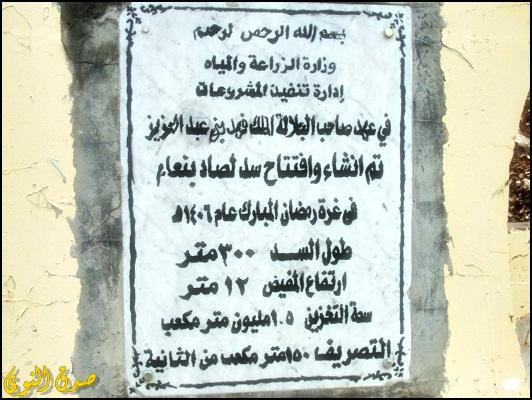 بسم الله الرحمن الرحيم
وزارة الزراعة والمياه
إدارة تنفيذ المشروعات
في عهد صاحب الجلالة الملك فهد بن عبد العزيز
تم انشاء وافتتاح سد لصاد بنعام
في غرة رمضان المبارك عام ١٤٠٦ه
طول السد ٣٠٠ متر
ارتفاع المفيض ١٢ متر
سعة التخزين ١.٥ مليون متر مكعب
التصريف ١٥٠ متر مكعب من الثانية
صدى النوى